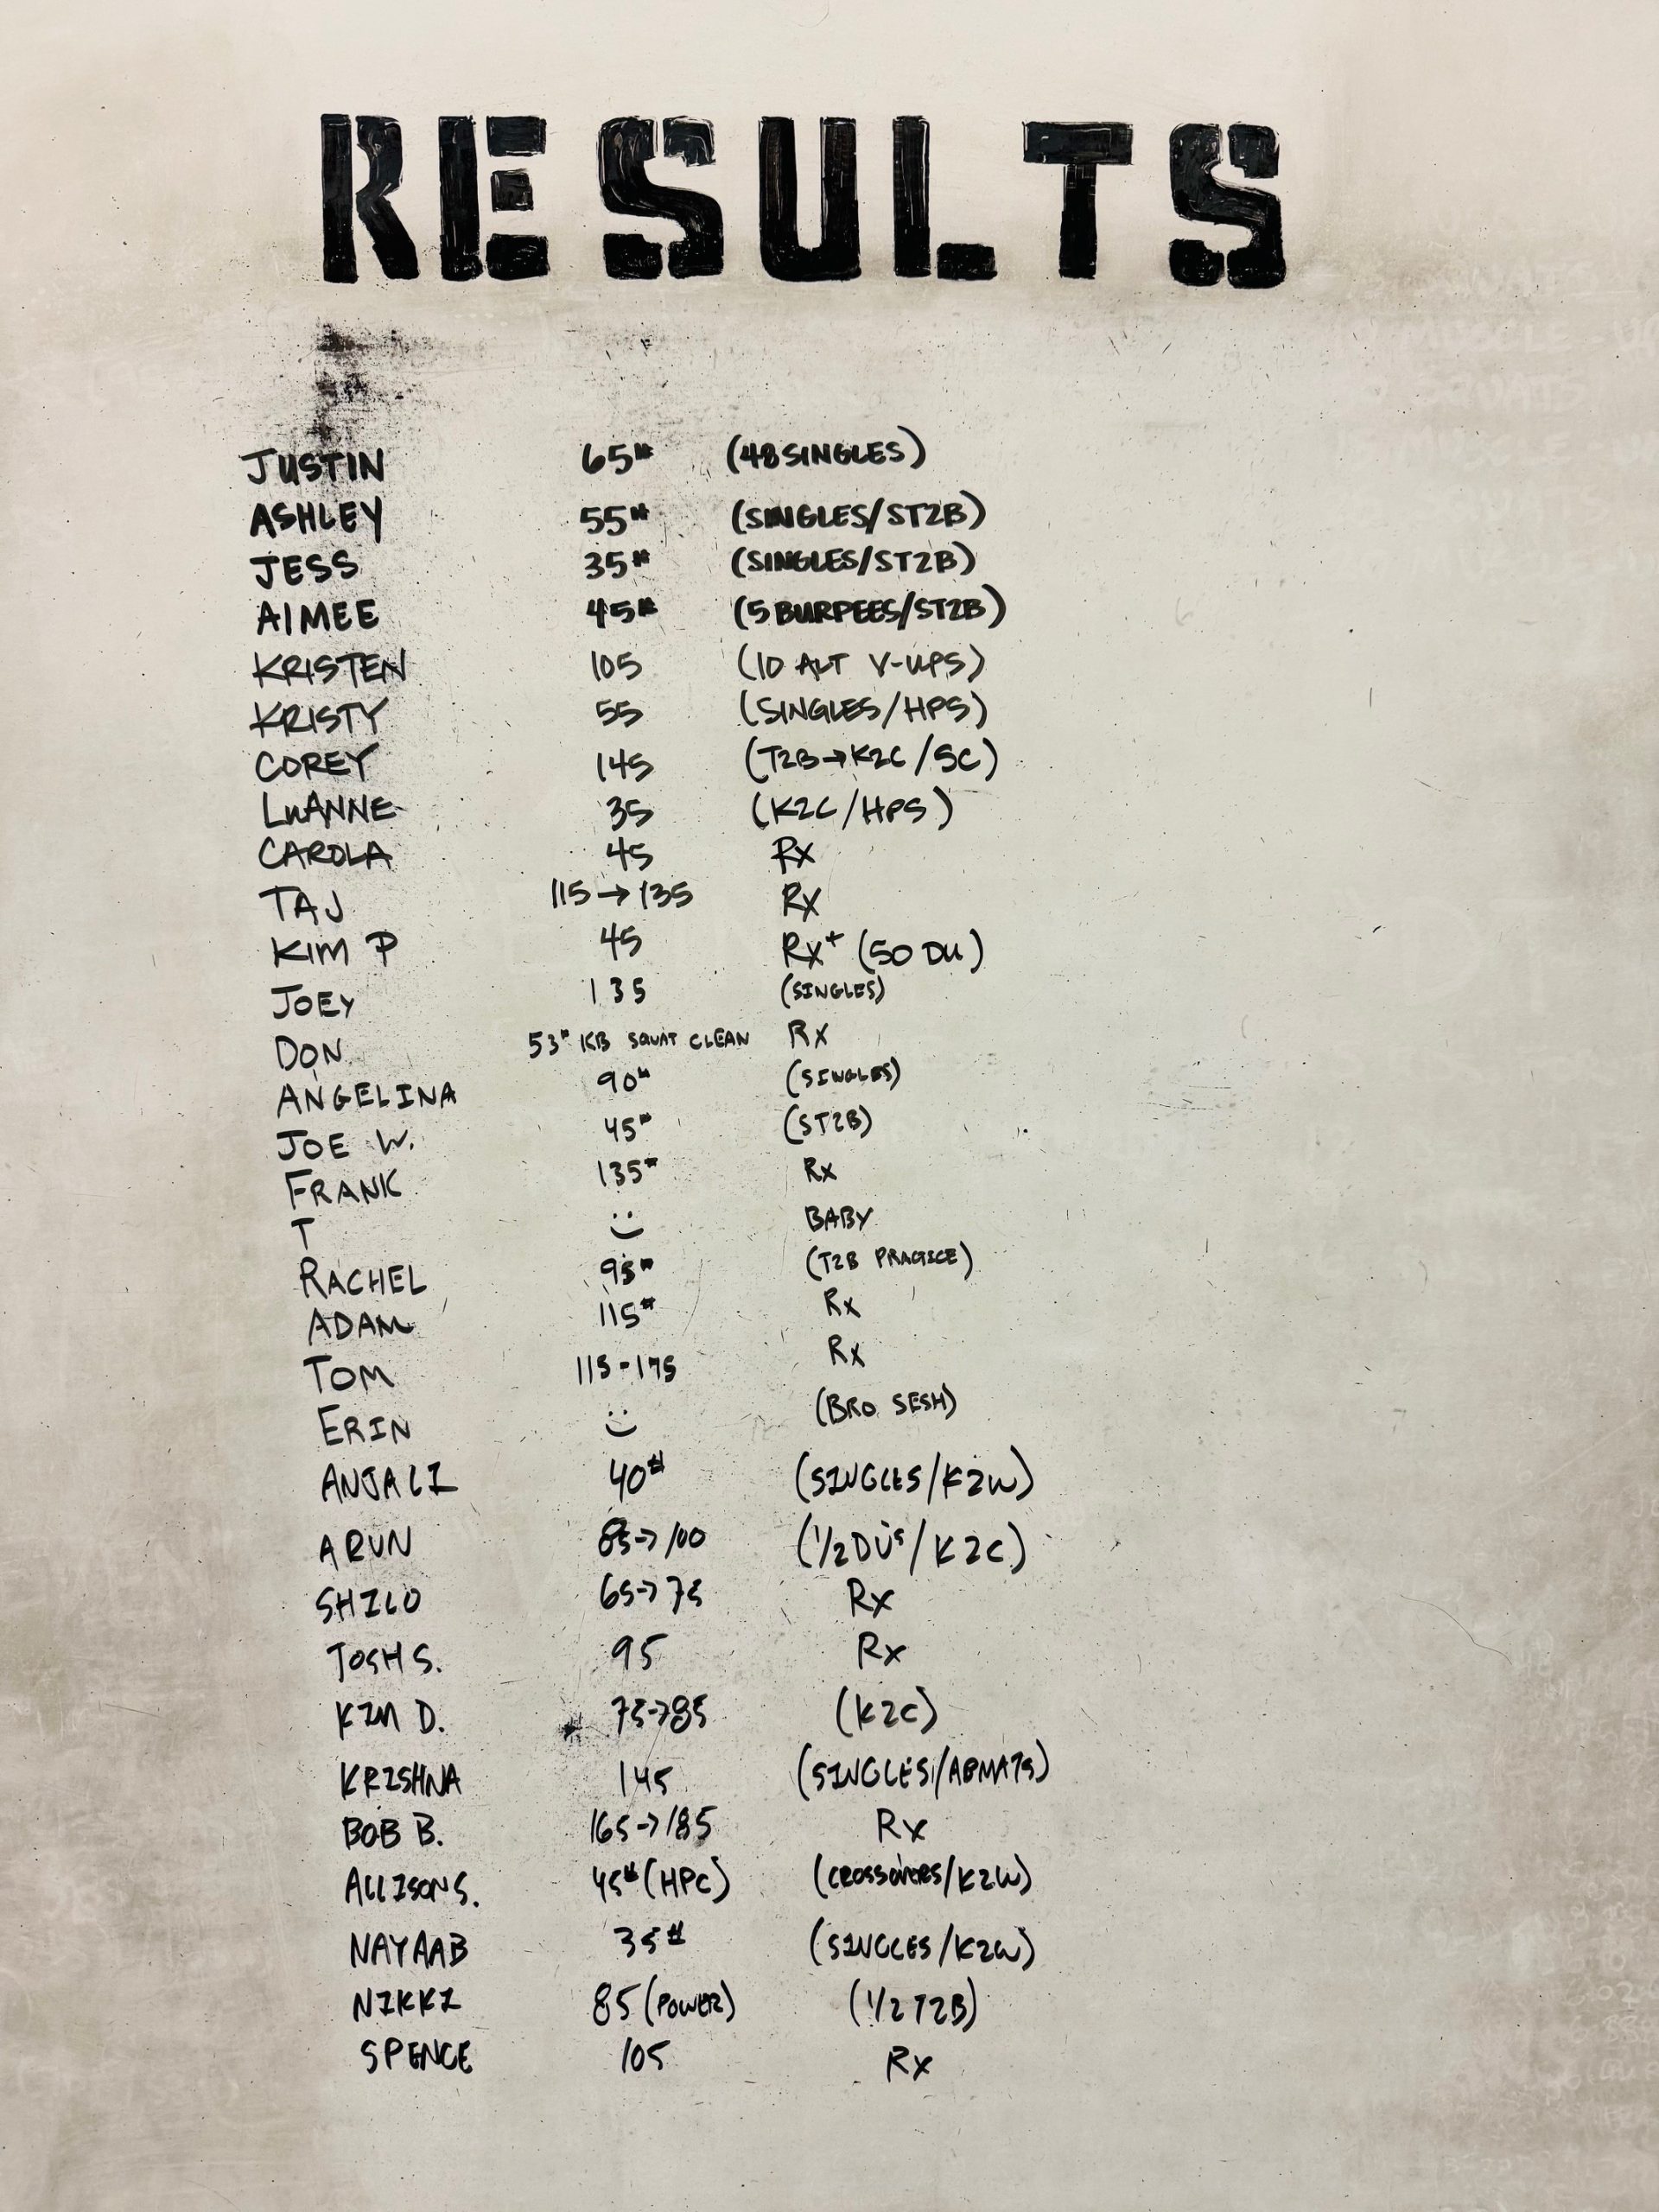 RESULTS
JUSTIN 65# (48 SINGLES)
ASHLEY 55# (SINGLES/ST2B)
JESS 35# (SINGLES/ST2B)
AIMEE 45# (5 BURPEES/ST2B)
KRISTEN 105 (10 ALT V-UPS)
KRISTY 55 (SINGLES/HPS)
COREY 145 (T2B→K2C/SC)
LuANNE 35 (K2C/HPS)
CAROLA 45 Rx
TAJ 115→135 Rx
KIM P 45 Rx+ (50 DU)
JOEY 135 (SINGLES)
DON 53# KB SQUAT CLEAN Rx
ANGELINA 90# (SINGLES)
JOE W. 45# (ST2B)
FRANK 135# Rx
T :) BABY
RACHEL 95# (T2B PRACTICE)
ADAM 115# Rx
TOM 115-175 Rx
ERIN :) (BRO SESH)
ANJALI 40# (SINGLES/K2W)
ARUN 85→100 (1/2 DU's/K2C)
SHILO 65→75 Rx
JOSH S. 95 Rx
KIM D. 75→85 (K2C)
KRISHNA 145 (SINGLES/ABMATS)
BOB B. 165→185 Rx
ALLISON S. 45# (HPC) (CROSSOVERS/K2W)
NAYAAB 35# (SINGLES/K2W)
NIKKI 85 (POWER) (1/2 T2B)
SPENCE 105 Rx